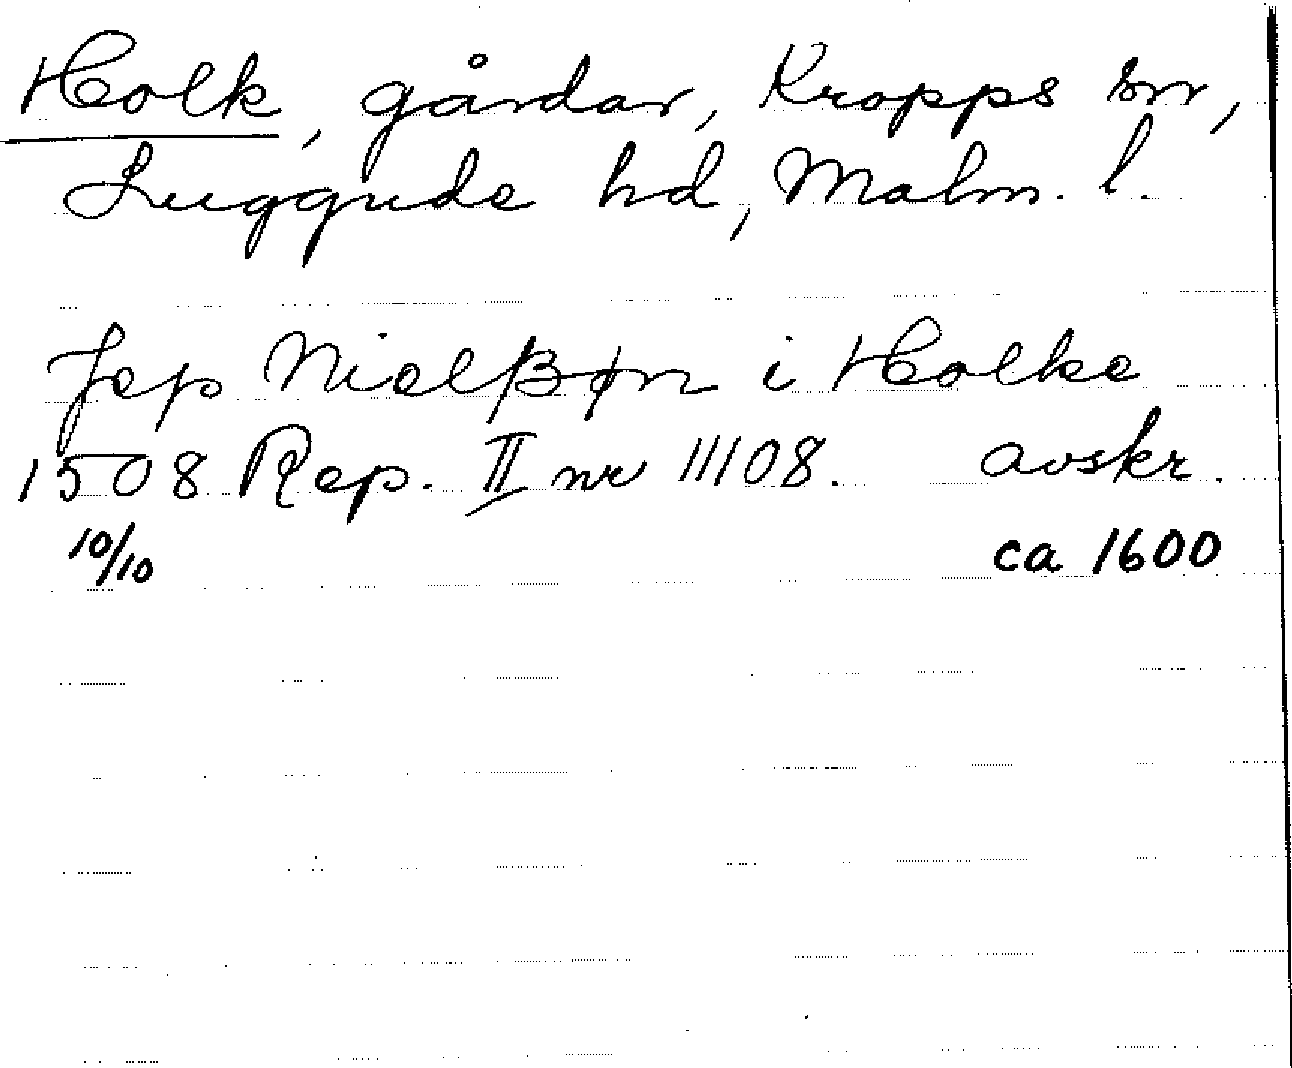 Holk, gårdar, Kropps sn,
Luggude hd, Malm. l.
Jep Nielßøn i Holke
1508 Rep. II nr 11108. avskr.
10/10 ca 1600